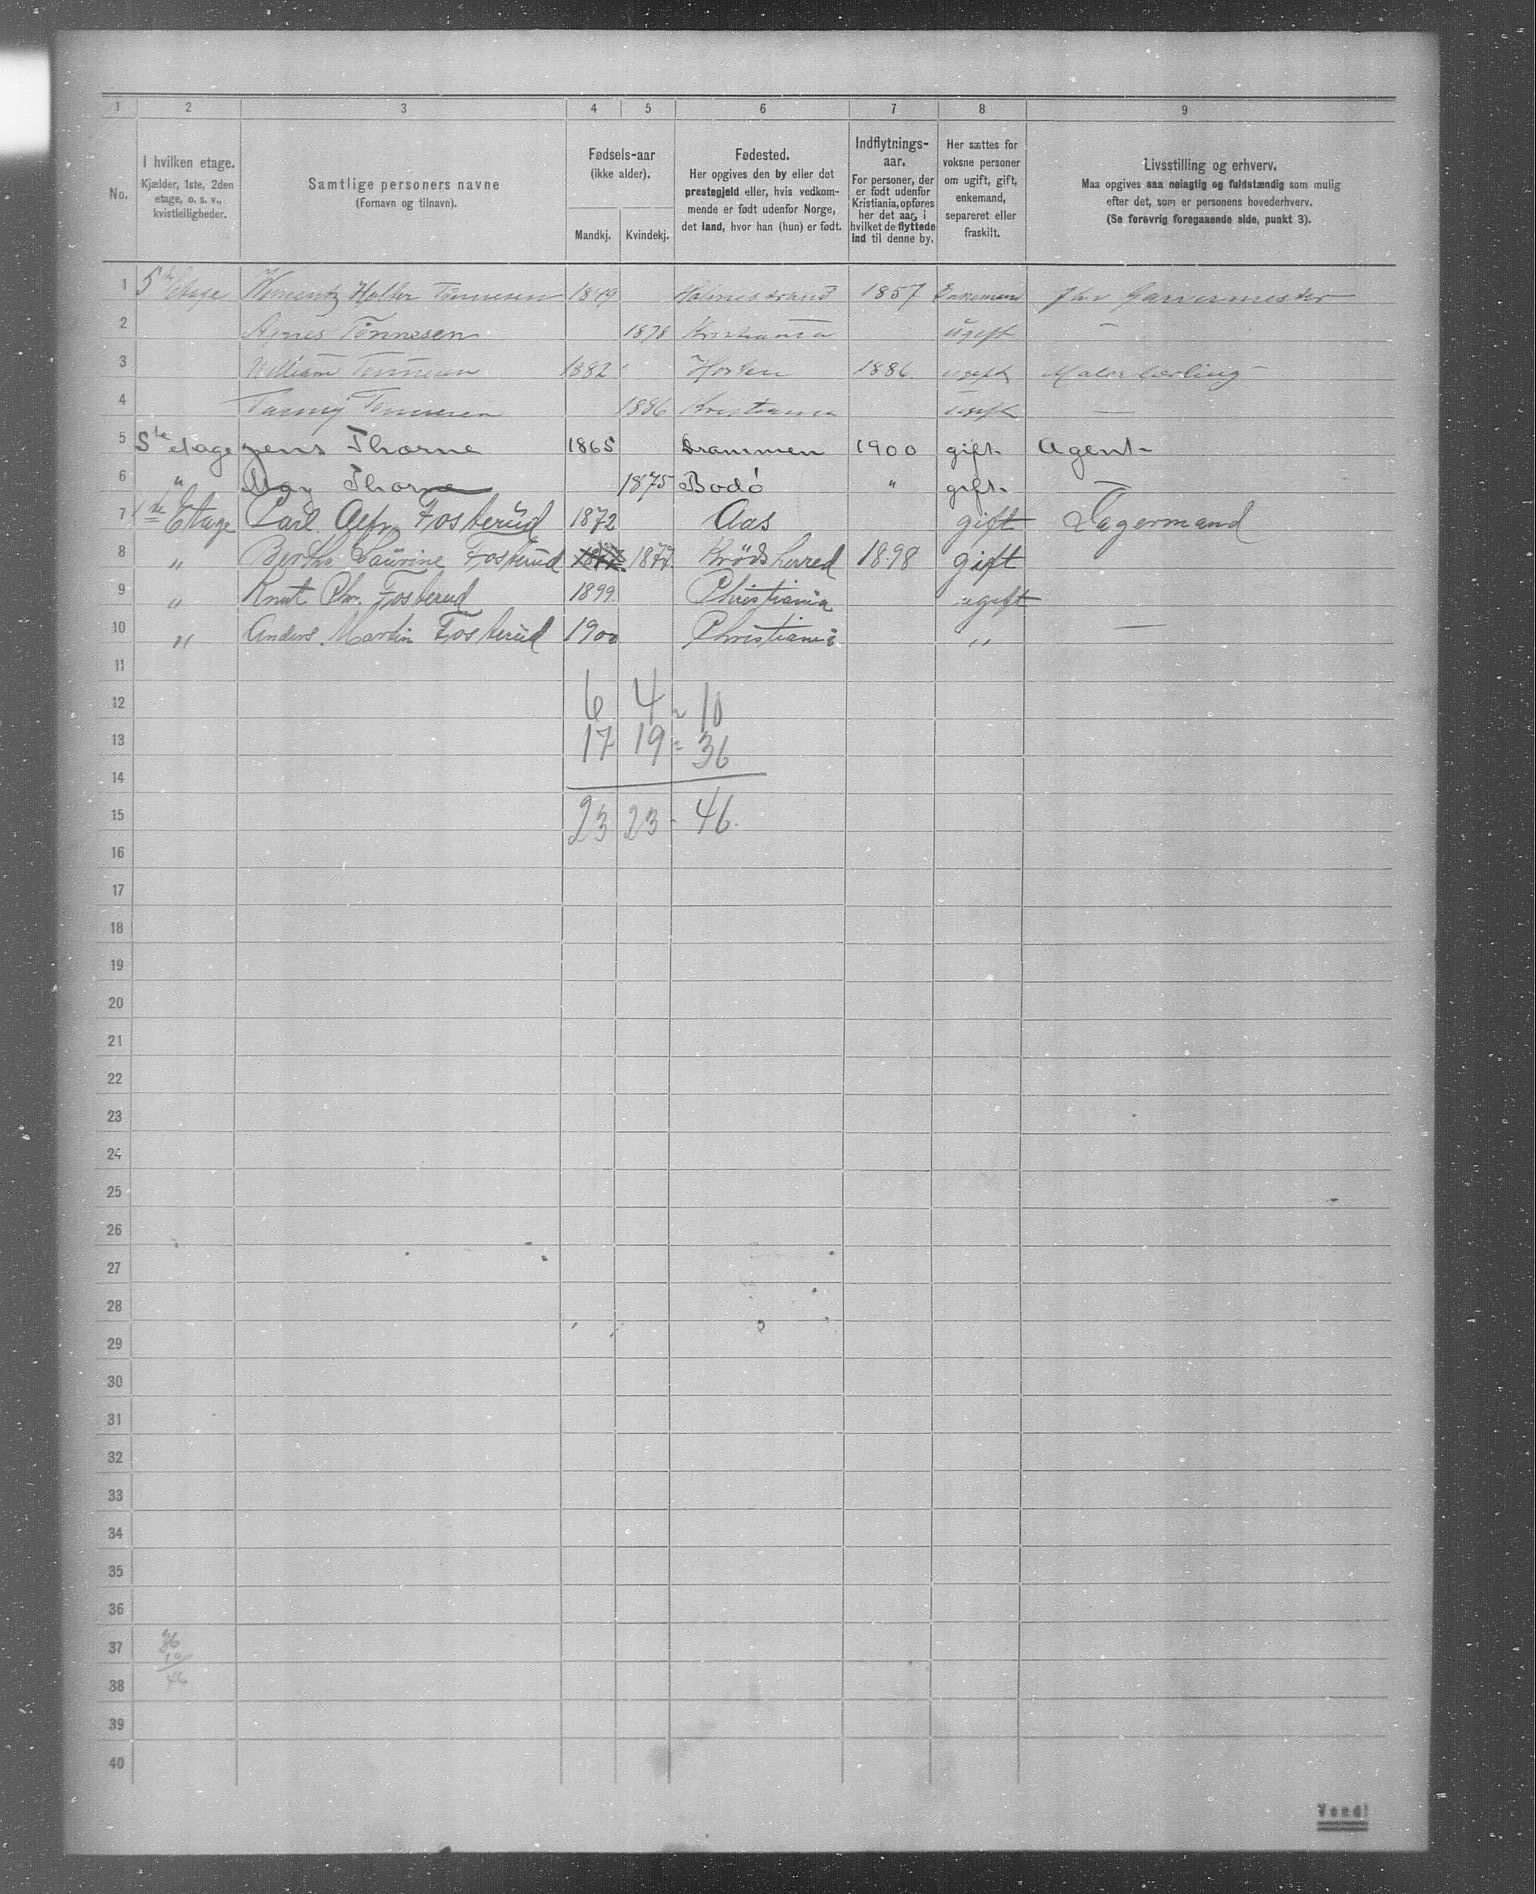 1 2 3 4 5 6 7 8 9
No.
I hvilken etage.
Kjælder, 1ste, 2den
etage, o. s. v.,
kvistleiligheder.
Samtlige personers navne
(Fornavn og tilnavn).
Fødsels-aar
(ikke alder).
Mandkj. Kvindekj.
Fødested.
Her opgives den by eller det
prestegjeld eller, hvis vedkom-
mende er født udenfor Norge,
det land, hvor han (hun) er født.
Indflytnings-
aar.
For personer, der
er født udenfor
Kristiania, opføres
her det aar, i
hvilket de flyttede
ind til denne by.
Her sættes for
voksne personer
om ugift, gift,
enkemand,
separeret eller
fraskilt.
Livsstilling og erhverv.
Maa opgives saa nøiagtig og fuldstændig som mulig
efter det, som er personens hovederhverv.
(Se forøvrig foregaaende side, punkt 3).
1 5te Etage Holter Tønnesen 1849 Holmestrand 1857 Enkemand Garvermester
2 Agnes Tønnesen 1878 Kristiania ugift —
3 William Tønnesen 1882 Horten 1886. ugift Malerlærling
4 Fanny Tønnesen 1886 Kristiania ugift —
5 5te etage Jens Thorne 1865 Drammen 1900 gift. Agent
6 " May Thorne 1875 Bodö " gift. —
7 1ste Etage Carl Alfr. Fosterud 1872 Aas gift Lagermand
8 " Berthe Laurine Fosterud 1877. 1877. Krödsherred 1898 gift
9 " Knut Chr. Fosterud 1899. Christiania ugift
10 " Anders Martin Fosterud 1900 Christiania " —
11
12 6 4 = 10
13 17 19 = 36
14
15 23 23 - 46.
16
17
18
19
20
21
22
23
24
25
26
27
28
29
30
31
32
33
34
35
36
37 36
10
38 46
39
40
Vend!